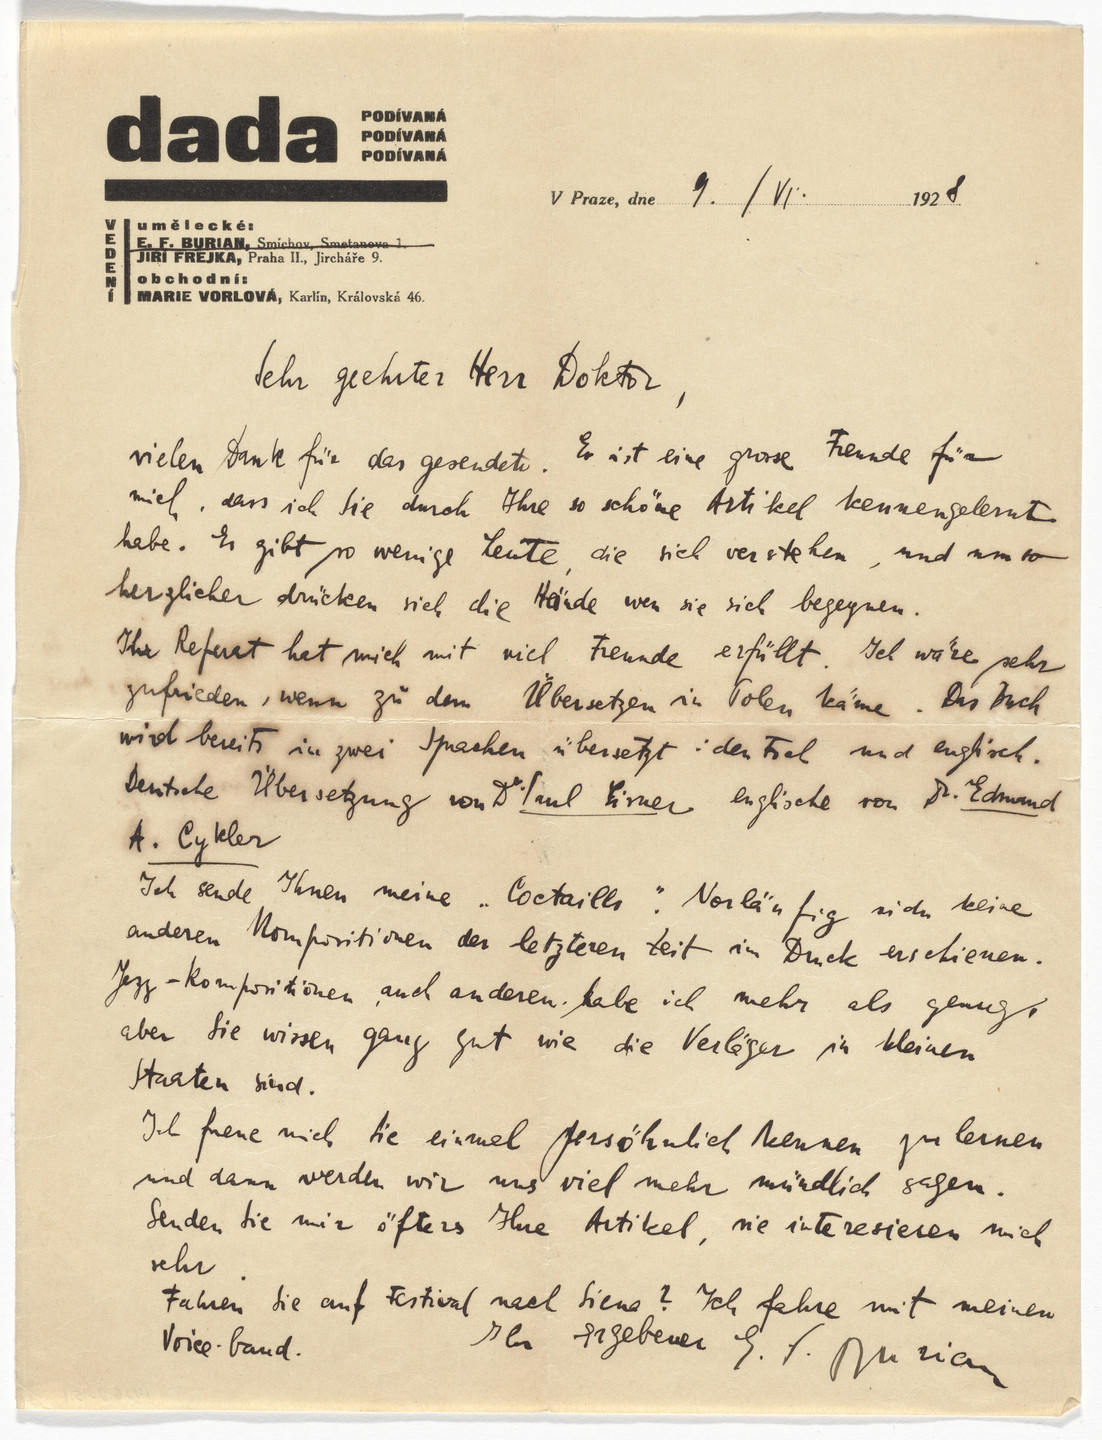 dada
PODÍVANÁ
PODÍVANÁ
PODÍVANÁ
V Praze, dne 9. / VI. 1928
VEDENÍ
umělecké:
E. F. BURIAN, Smíchov, Smetanova 1.
JIŘÍ FREJKA, Praha II., Jircháře 9.
obchodní:
MARIE VORLOVÁ, Karlín, Královská 46.
Sehr geehrter Herr Doktor,
vielen Dank für das gesendete. Es ist eine grosse Freunde für
mich, dass ich Sie durch Ihre so schöne Artikel kennengelernt
habe. Es gibt so wenige Leute, die sich verstehen, und umso
herzlicher drücken sich die Hände wen sie sich begegnen.
Ihr Referat hat mich mit viel Freunde erfüllt. Ich wäre sehr
zufrieden, wenn zu dem Übersetzen in Polen käme. Das Buch
wird bereits in zwei Sprachen übersetzt: deutsch und englisch.
Deutsche Übersetzung von Dr. Paul Eisner englische von Dr. Edmund
A. Cykler
Ich sende Ihnen meine „Coctaills". Vorläufig sidn keine
anderen Kompositionen der letzteren Zeit im Druck erschienen.
Jazz-Kompositionen auch anderen habe ich mehr als genug,
aber Sie wissen ganz gut wie die Verläger in kleinen
Staaten sind.
Ich freue mich Sie einmel persöhnlich kennen zu lernen
und dann werden wir uns viel mehr mündlich sagen.
Senden Sie mir öfters Ihre Artikel, sie interesieren mich
sehr.
Fahren Sie auf Festival nach Siena? Ich fahre mit meinen
Voice-band.
Ihr ergebener E. F. Burian